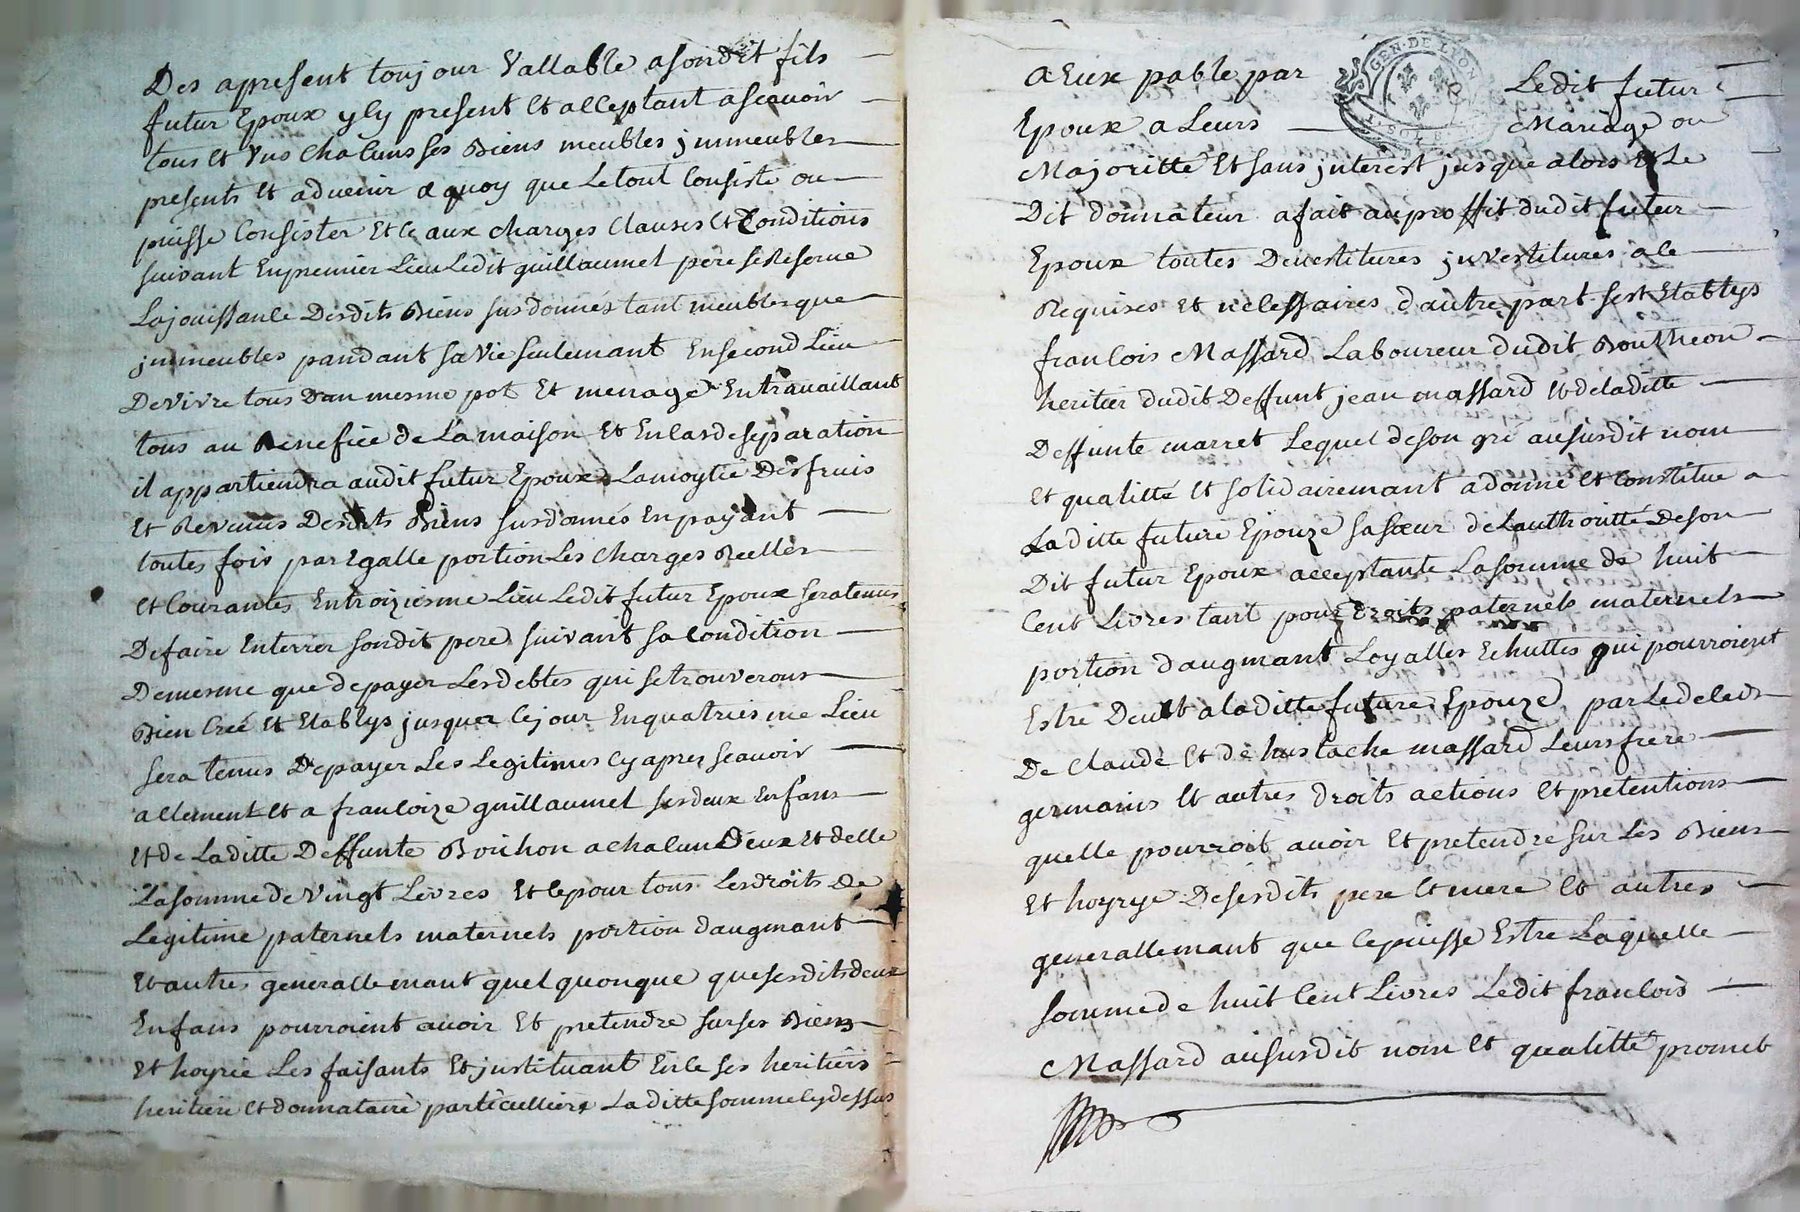 Des apresent toujour Vallable a sondit fils
futur Epoux yly present Et acceptant ascavoir
tous Et vns chacuns ses Biens meubles jmmeubles
presents Et advenir a quoy que Le tout Consiste ou
puisse Consister Et Ce aux charges Clauses Et Conditions
suivant En premier Lieu Ledit guillaumet pere se Reserve
La jouissance Desdits Biens sus donnés tant meubles que
jmmeubles pandant sa vie seulemant En second Lieu
De vivre tous Dan mesme pot Et menage En travaillant
tous au Benefice de La maison Et En Cas de separation
il appartiendra audit futur Epoux La moytie Des fruis
Et Revenus Desdits Biens sus donnés En payant
toutes fois par Egalle portion Les charges Reelles
Et Courantes En troiziesme Lieu Ledit futur Epoux sera tenus
De faire Enterrer sondit pere suivant sa Condition
De mesme que de payer Les debtes qui se trouverons
Bien Creé Et Etablys jusques Ce jour En quatriesme Lieu
sera tenus De payer Les Legitimes Cy apres scavoir
a Clement Et a francoize guillaumet ses deux Enfans
Et de Laditte Deffunte Bouchon a chacun Deux Et delle
La somme de Vingt Livres Et Ce pour tous Les droits De
Legitime paternels maternels portion daugmant
Et autres generallemant quel quonque que sesdits deux
Enfans pourroient avoir Et pretendre sur ses Biens
Et hoyrie Les faisants Et jnstituant En Ce ses heritiers
heritiere Et donnataire particulliere La ditte somme Cy dessus
a Eux pable par Ledit futur
GEN. DE LYON
Epoux a Leurs Mariage ou
Majoritté Et sans jnterest jusque alors Et Le
Dit donnateur a fait au proffit dudit futur
Epoux toutes Devestitures jnvestitures a Ce
Requises Et necessaires d'autre part sest Etablys
francois Massard Laboureur dudit Boutheon
heritier dudit Deffunt jean massard Et de laditte
Deffunte marret Lequel de son gré au susdit nom
Et qualitté Et solidairemant a donné Et Constitue a
La ditte future Epouze sa sœur de Lauthoritté De son
Dit futur Epoux acceptante La somme de huit
Cent Livres tant pour Droits paternels maternels
portion daugmant Loyalles Echuttes qui pourroient
Estre Deubt a laditte future Epouze par Le deceds
De Claude Et de hustache massard Leurs frere
germains Et autres droits actions Et pretentions
quelle pourroit avoir Et pretendre sur Les Biens
Et hoyrye De sesdits pere Et mere Et autres
generallemant que Ce puisse Estre Laquelle
somme de huit Cent Livres Ledit francois
Massard au susdit nom Et qualitté promet